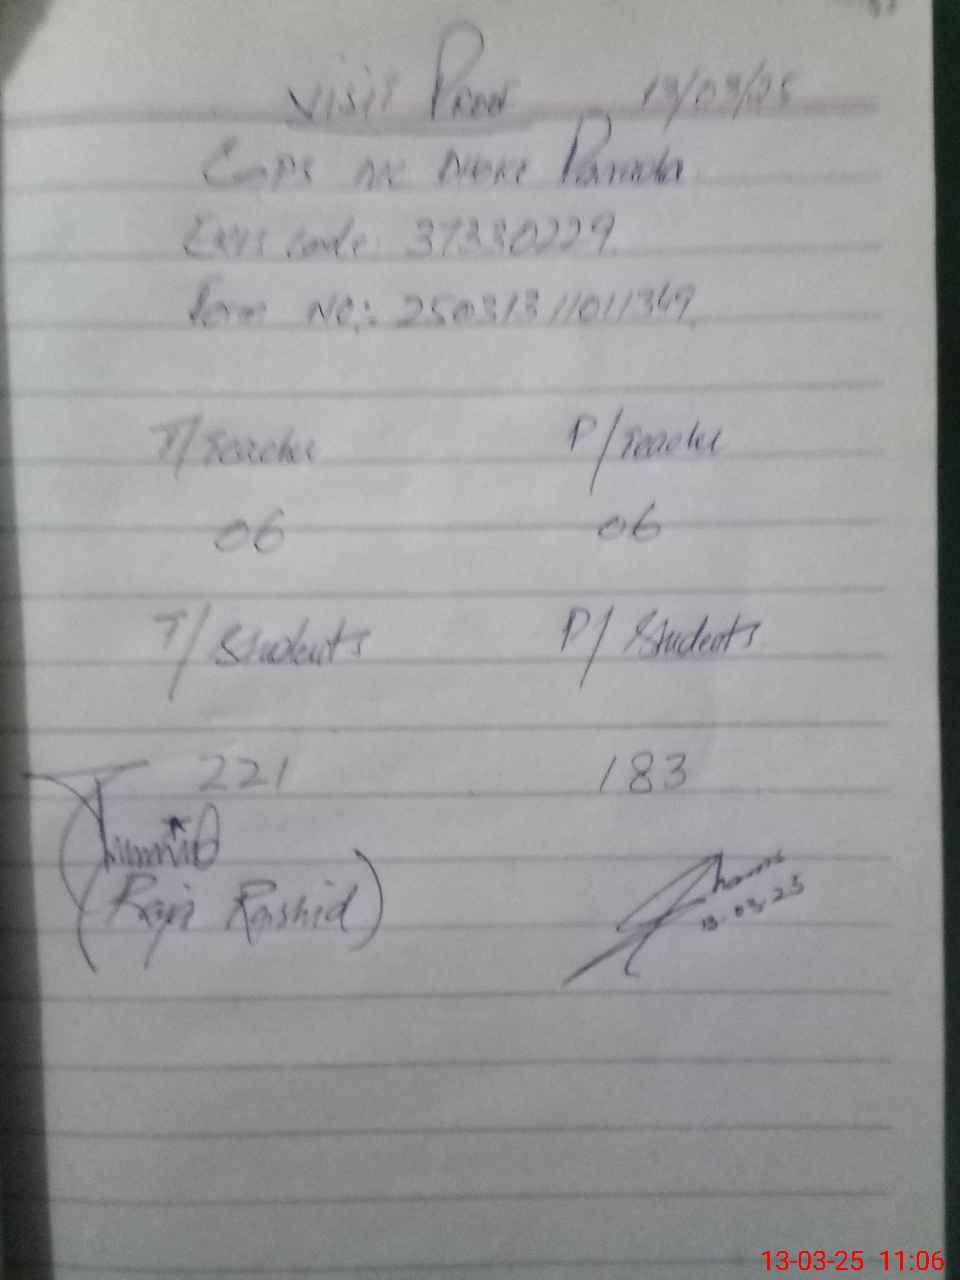 Visit Proof 13/03/25
EMIS code: 37330229
Form No.: 2503131101134
T/Teacher P/Teacher
06 06
T/Students P/Students
221 183
(Raja Rashid)
13.03.25
13-03-25 11:06